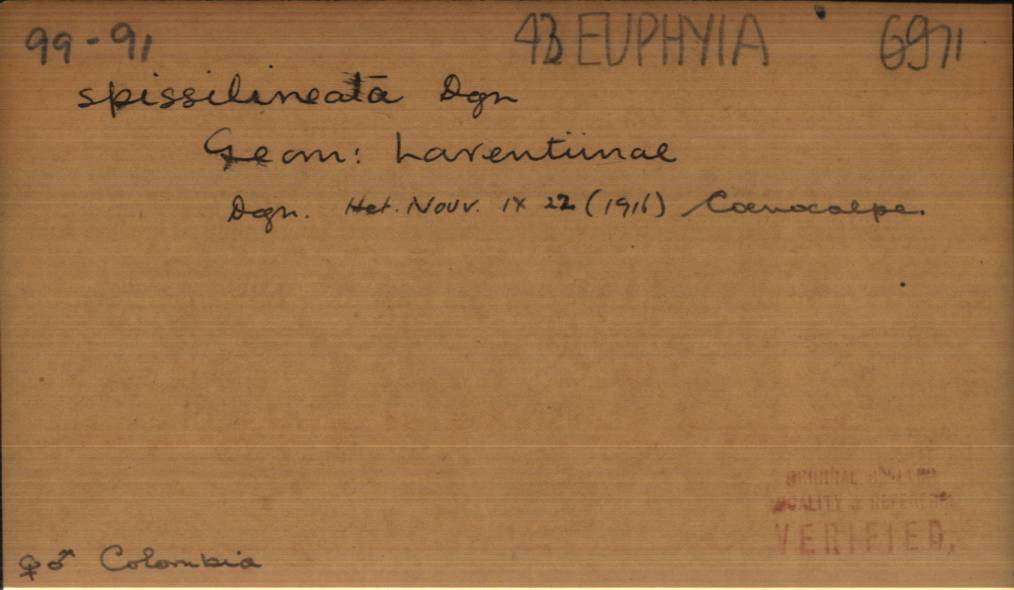 99-91 43 EUPHYIA 6971
spissilineata Dgn
Geom: Larentiinae
Dgn. Het. Nouv. IX 22 (1916) Coenocalpe.
ORIGINAL
LOCALITY & REFERENCE
VERIFIED.
♀♂ Colombia